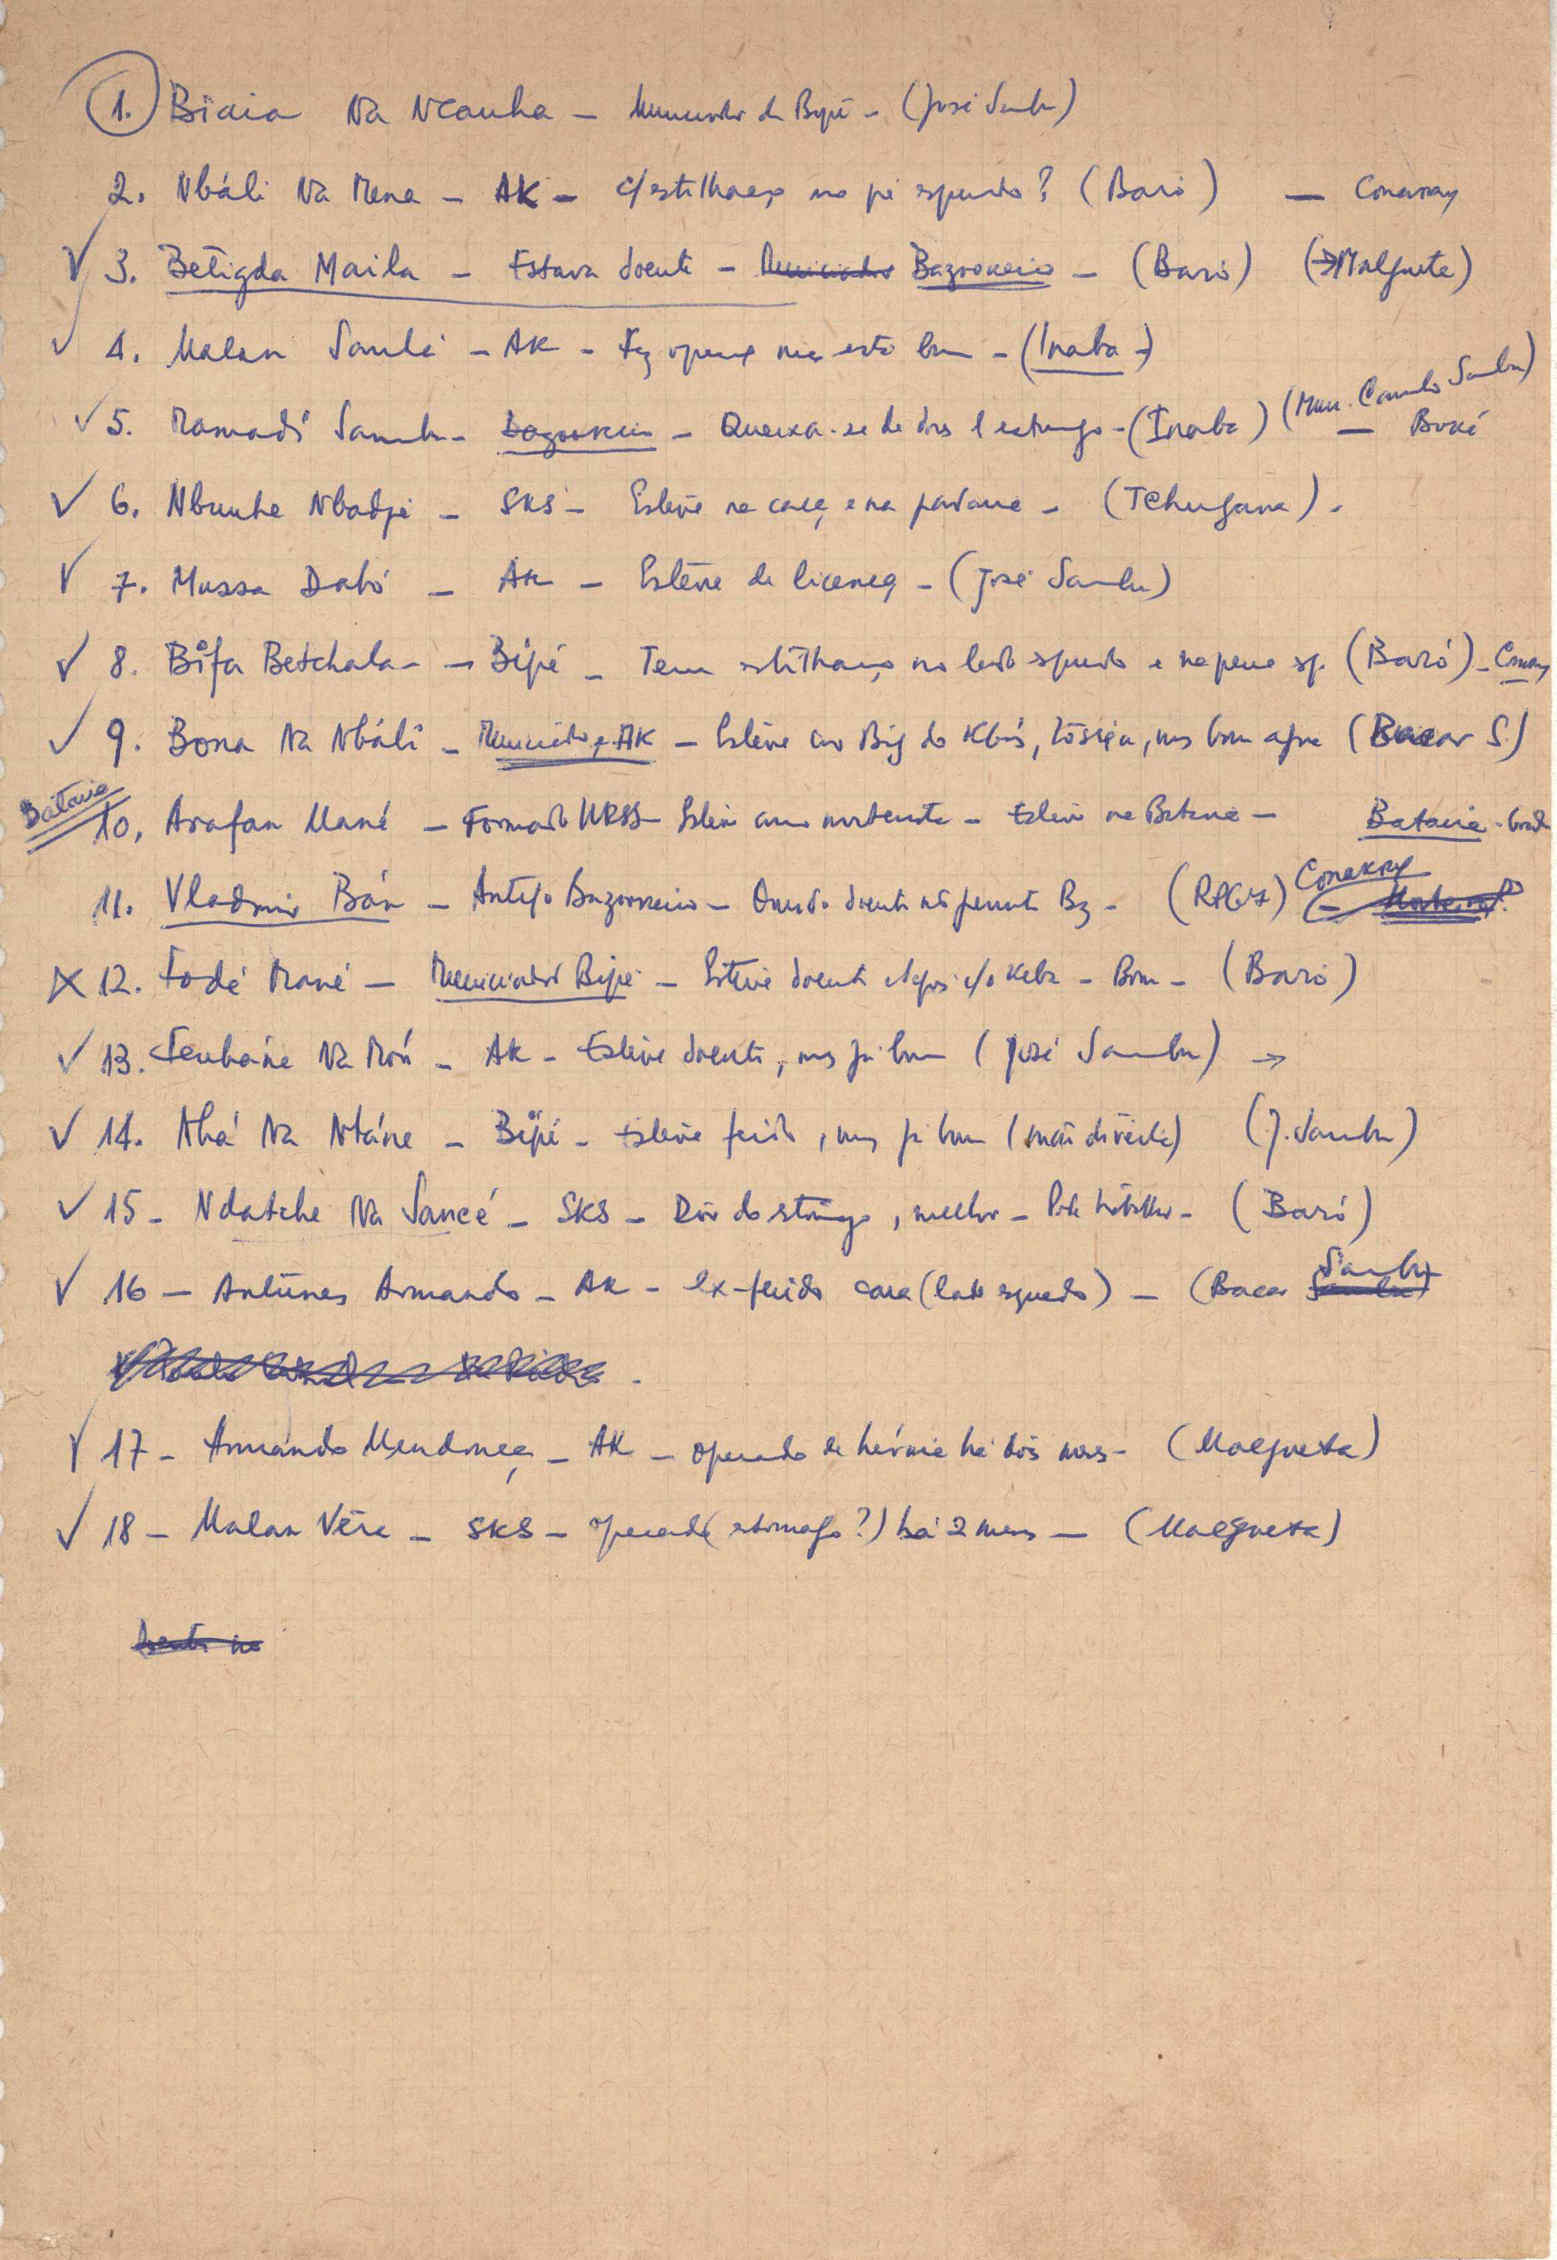 1. Biaia Na Ncanha – Municiador de Bipé – (José Sambu)
2. Nbáli Na Mena – AK – c/estilhaço no pé esquerdo? (Baró) — Conakry
3. Betigda Maila – Estava doente – Municiador Bazookeiro – (Baró) (→Malgueta)
4. Malan Sambá – AK – Fez operaç mas está bom – (Inaba)
(Mun. Camilo Sambu)
5. Mamadí Sambu – bazookeiro – Queixa-se de dores d'estomago – (Inaba) — Boké
6. Nbunhe Nbadjé – SKS – Esteve na caça e na – (Tchugana).
7. Mussa Dabó – AK – Esteve de licença – (José Sambu)
8. Bifa Betchala – Bipé – Tem estilhaço no lado esquerdo e na perna esq. (Baró) – Conakry
9. Bona Na Nbáli – Municiador, AK – Esteve no do, mas bom agora (Bacar S.)
Batavia
10. Arafan Mané – Formado URSS – Esteve como – Esteve na Batavia – Batavia –
11. Vladmir Bán – Antigo Bazookeiro – Quando doente não Bz – (RPG7) Conakry
12. Fodé Mané – Municiador Bipé – Esteve doente depois c/o Keba – Bom – (Baró)
13. Na Mon – AK – Esteve doente, mas já bom (José Sambu) →
14. Nhá Na Ntáne – Bipé – Esteve ferido, mas já bom (mão direita) (J. Sambu)
15 – Ndatche Na Sancé – SKS – Dôr do estômago, melhor – Pode trabalhar – (Baró)
16 – Antúnes Armando – AK – Ex-ferido cara (lado esquerdo) – (Bacar Sambu)
17 – Armando Mendonça – AK – operado de hérnia há dois meses – (Malgueta)
18 – Malan Véra – SKS – operado (estomago?) há 2 meses – (Malgueta)
Doente no